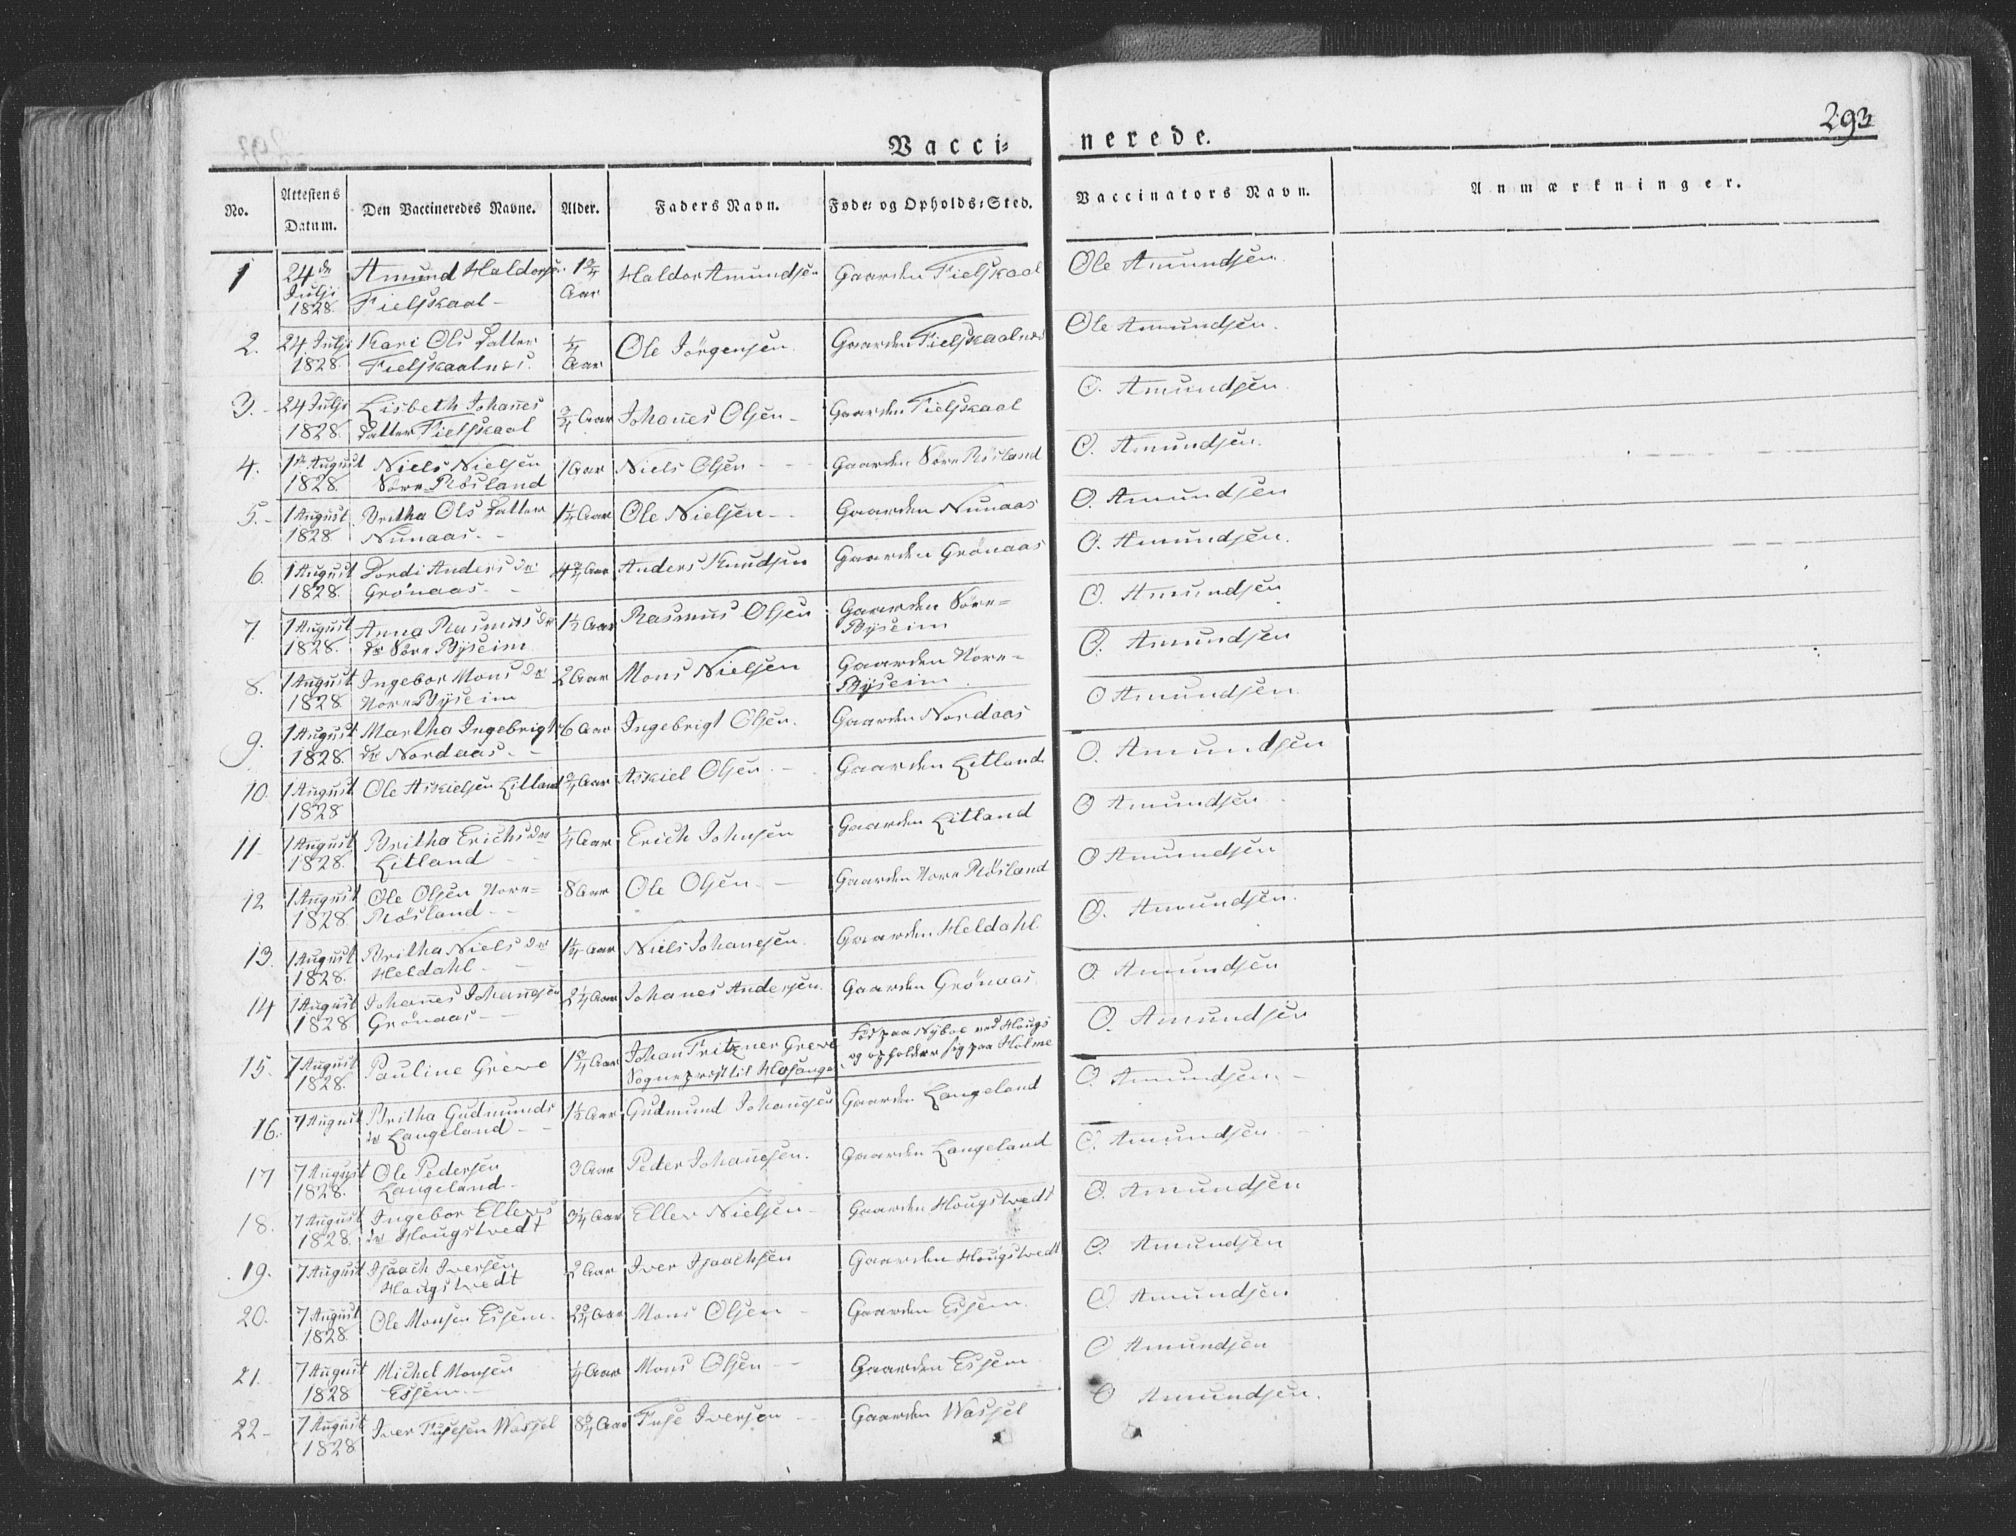 293
Vacci- nerede.
No. Attestens Datum. Den Vaccineredes Navne. Alder. Faders Navn. Føde- og Opholds-Sted. Vaccinators Navn. Anmærkninger.
1 24de Julji 1828. Amund Haldorsen Fielskaal 1 3/4 Aar Haldor Amundsen Gaarden Fielskaal Ole Amundsen
2. 24 Julji 1828 Kari Ols Datter Fielskaalnes. 1/4 Aar Ole Jörgensen. Gaarden Fielskaalnes Ole Amundsen.
3. 24 Julji 1828. Lisbeth Johañes Datter Fielskaal 3/4 Aar Johañes Olsen Gaarden Fielskaal O. Amundsen.
4. 1ste August 1828. Niels Nielsen Söre Rösland 1 Aar Niels Olsen Gaarden Söre Rösland O. Amundsen.
5. 1 August 1828 Britha Ols Datter Nunaas. 1 1/4 Aar Ole Nielsen Gaarden Nunaas O. Amundsen
6. 1 August 1828. Dordi Anders Dr Grönaas. 4 3/4 Aar Anders Knudsen Gaarden Grönaas O. Amundsen.
7. 1 August 1828. Anna Rasmus Dr Söre Byseim 1 1/2 Aar Rasmus Olsen Gaarden Söre Byseim O. Amundsen
8. 1 August 1828 Ingebor Mons Dr Nore Byseim 2 Aar Mons Nielsen Gaarden Nore Byseim O. Amundsen
9. 1 August 1828. Martha Ingebrigt Dr Nordaas. 6 Aar Ingebrigt Olsen. Gaarden Nordaas O Amundsen.
10. 1 August 1828 Ole Askielsen Litland 3/4 Aar Askiel Olsen Gaarden Litland O. Amundsen
11 1 August 1828. Britha Erichs Dr Litland 1/4 Aar Erich Johnsen Gaarden Litland O Amundsen
12 1 August 1828. Ole Olsen Nore Rösland. 8 Aar Ole Olsen. Gaarden Nore Rösland O Amundsen
13. 1 August 1828. Britha Niels Dr Heldahl. 1 1/4 Aar Niels Johanesen. Gaarden Heldahl. O. Amundsen.
14 1 August 1828 Johañes Johañesen Grönaas 2 1/4 Aar Johanes Andersen. Gaarden Grönaas. O. Amundsen
15. 7 August 1828. Pauline Greve 1 3/4 Aar Johan Fritzner Greve Sognepræst til Hosanger. Föd paa Nyboe ved Hougs og opholder sig paa Holme O. Amundsen
16. 7 August Britha Gudmunds Dr Langeland 1 1/2 Aar Gudmund Johañsen Gaarden Langeland O. Amundsen.
17 7 August 1828. Ole Pedersen Langeland. 3 Aar Peder Johañesen. Gaarden Langeland O. Amundsen
18. 7 August 1828. Ingebor Ellers Dr Hougstvedt 3 1/4 Aar Eller Nielsen Gaarden Hougstvedt O. Amundsen
19. 7 August Isaach Iversen Hougstvedt 2 Aar Iver Isaachsen Gaarden Hougstvedt O. Amundsen
20. 7 August 1828 Ole Monsen Essem. 2 3/4 Aar Mons Olsen Gaarden Essem. O. Amundsen
21. 7 August 1828 Michel Monsen Essem 1/4 Aar Mons Olsen Gaarden Essem O Amundsen
22 7 August 1828 Iver Wassel 8 3/4 Aar Iversen Gaarden Wassel O Amundsen.